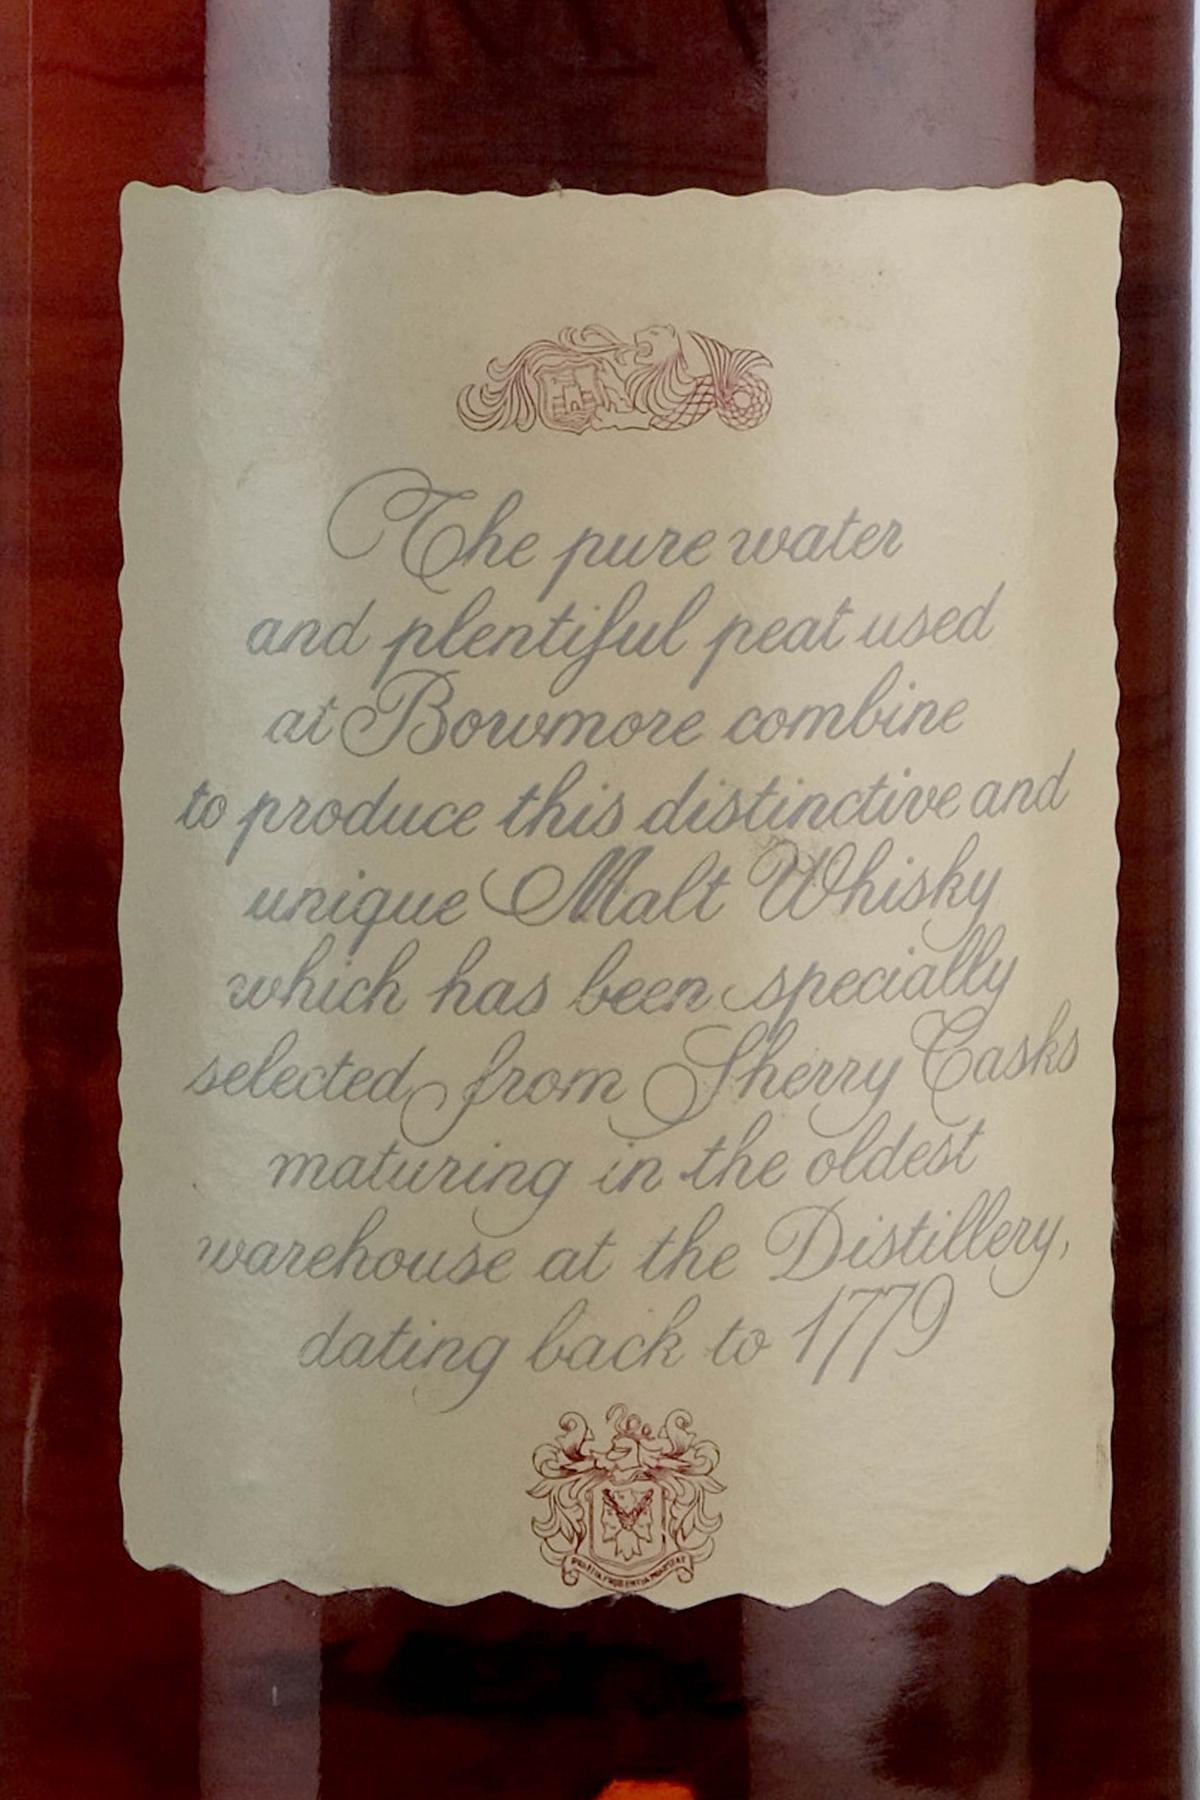 The pure water
and plentiful peat used
at Bowmore combine
to produce this distinctive and
unique Malt Whisky
which has been specially
selected from Sherry Casks
maturing in the oldest
warehouse at the Distillery,
dating back to 1779